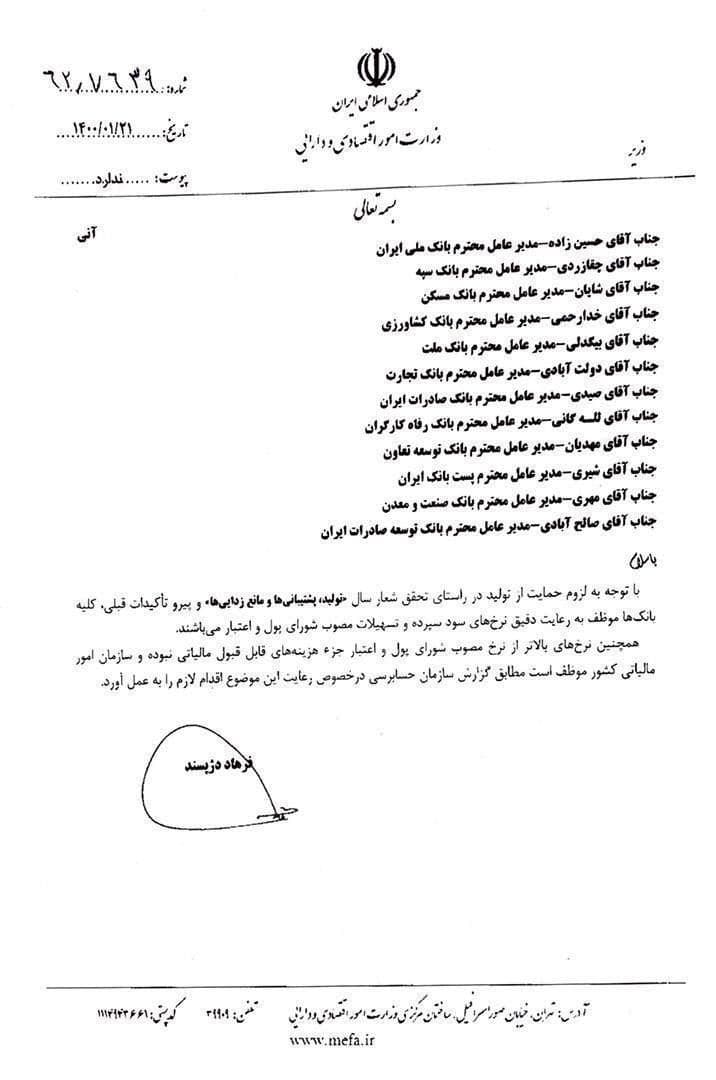 جمهوری اسلامی ایران
وزارت امور اقتصادی و دارایی
وزیر
شماره: ۶۲/۷۶۳۹
تاریخ: ۱۴۰۰/۰۱/۲۱
پیوست: ندارد
بسمه تعالی
آنی
جناب آقای حسین زاده–مدیر عامل محترم بانک ملی ایران
جناب آقای چقازردی–مدیر عامل محترم بانک سپه
جناب آقای شایان–مدیر عامل محترم بانک مسکن
جناب آقای خدارحمی–مدیر عامل محترم بانک کشاورزی
جناب آقای بیگدلی–مدیر عامل محترم بانک ملت
جناب آقای دولت آبادی–مدیر عامل محترم بانک تجارت
جناب آقای صیدی–مدیر عامل محترم بانک صادرات ایران
جناب آقای لله گانی–مدیر عامل محترم بانک رفاه کارگران
جناب آقای مهدیان–مدیر عامل محترم بانک توسعه تعاون
جناب آقای شیری–مدیر عامل محترم پست بانک ایران
جناب آقای مهری–مدیر عامل محترم بانک صنعت و معدن
جناب آقای صالح آبادی–مدیر عامل محترم بانک توسعه صادرات ایران
باسلام
با توجه به لزوم حمایت از تولید در راستای تحقق شعار سال «تولید، پشتیبانی‌ها و مانع زدایی‌ها» و پیرو تأکیدات قبلی، کلیه
بانک‌ها موظف به رعایت دقیق نرخ‌های سود سپرده و تسهیلات مصوب شورای پول و اعتبار می‌باشند.
همچنین نرخ‌های بالاتر از نرخ مصوب شورای پول و اعتبار جزء هزینه‌های قابل قبول مالیاتی نبوده و سازمان امور
مالیاتی کشور موظف است مطابق گزارش سازمان حسابرسی درخصوص رعایت این موضوع اقدام لازم را به عمل آورد.
فرهاد دژپسند
آدرس: تهران، خیابان صوراسرافیل، ساختمان مرکزی وزارت امور اقتصادی و دارایی تلفن: ۳۹۹۰۹ کدپستی: ۱۱۱۴۹۴۳۶۶۱
www.mefa.ir